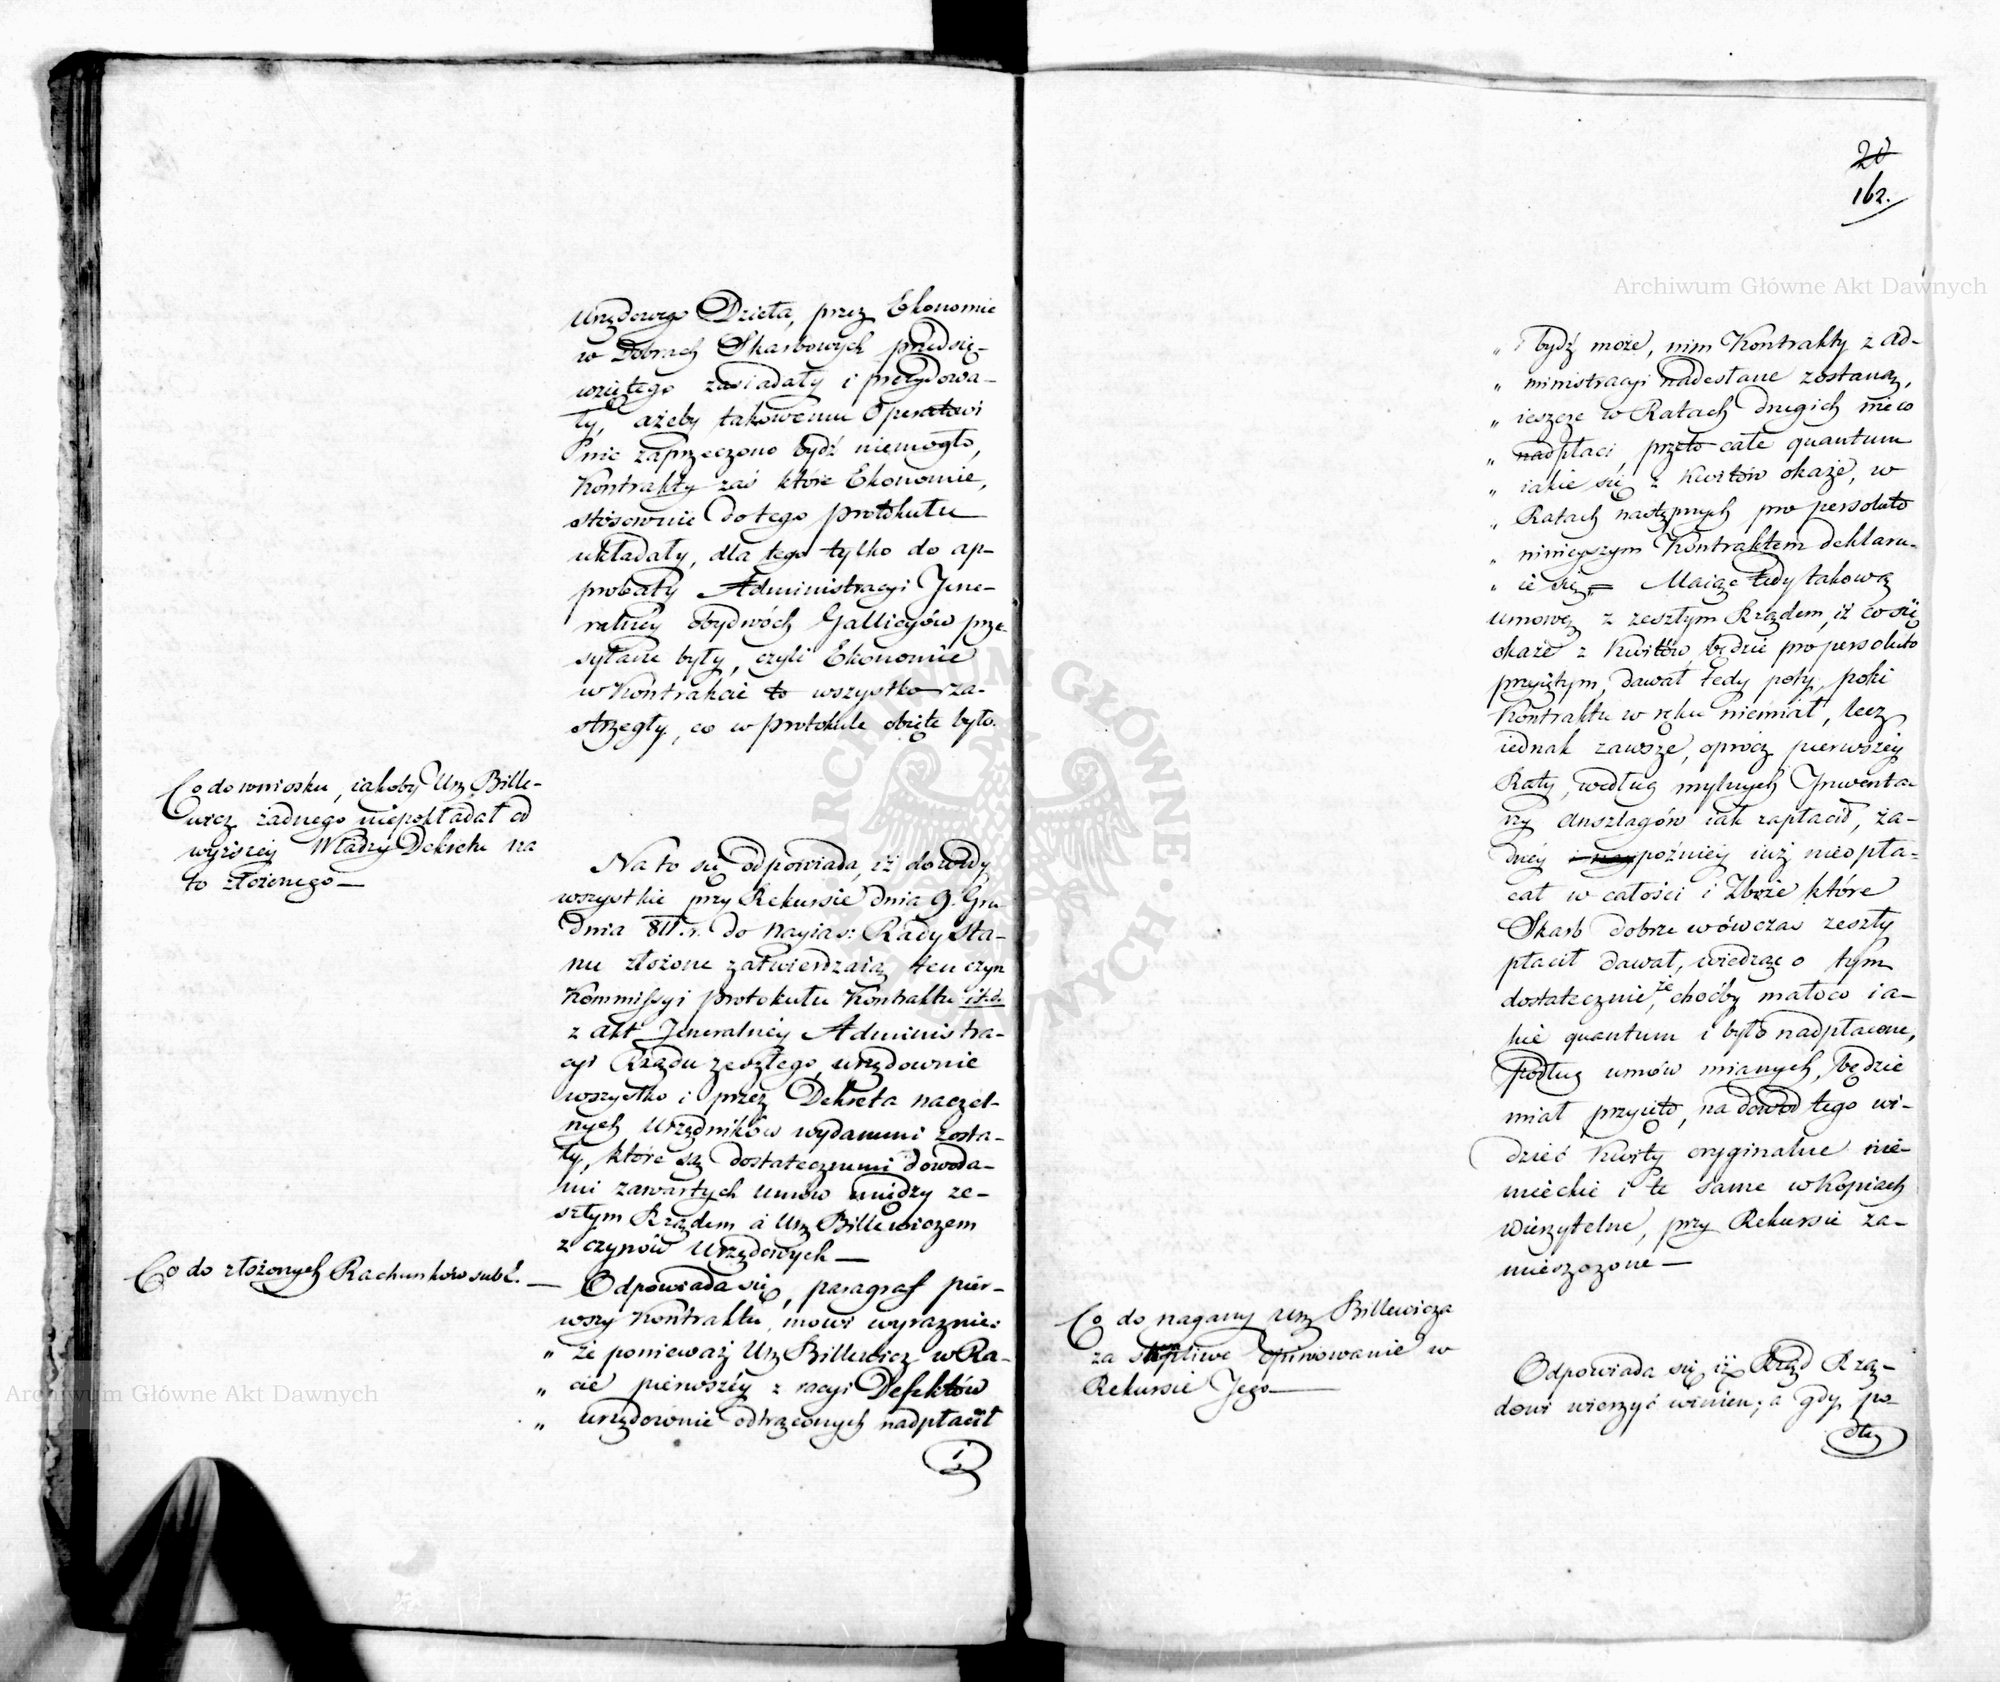 urzędowego Dzieła, przez Ekonomie
w Dobrach Skarbowych przedsię-
wziętego zasiadały i prezydowa-
ły, ażeby takowemu Operatowi
nic zaprzeczono bydź niemogło,
Kontrakty zaś które Ekonomie,
stósownie do tego protokułu
układały, dla tego tylko do ap-
probaty Administracyi Jene-
ralney obydwóch Gallicyów prze-
syłane były, czyli Ekonomie
w Kontrakcie to wszystko za-
strzegły, co w protokule objęte było.
Co do wniosku, jakoby Urz. Bille-
wicz żadnego niepokładał od
wyższey Władzy Dekretu na
to złożonego —
Na to się odpowiada, iż dowody
wszystkie przy Rekursie dnia 9. Gru
dnia 811. r. do Nayias: Rady Sta-
nu złożone zatwierdzaią ten czyn
Kommissyi protokułu Kontraktu it.d.
z akt Jeneralney Administra-
cyi Rządu zeszłego, urzędownie
wszystko i przez Dekreta naczel-
nych Urzędników wydanemi zosta-
ły, które są dostatecznemi dowoda-
mi zawartych umów między ze-
szłym Rządem a Urz Billewiczem
z czynów Urzędowych —
Co do złożonych Rachunków sub E. —
Odpowiada się, paragraf pier-
wszy Kontraktu, mówi wyraznie:
„ że ponieważ Urz Billewicz w Ra-
„ cie pierwszéy z racyi Defektów
„ urzędownie odtrąconych nadpłacił
i
20
162.
„ i bydź może, nim Kontrakty z Ad-
„ ministracyi nadesłane zostaną,
„ ieszcze w Ratach drugich nieco
„ nadpłaci, przeto całe quantum
„ iakie się z Kwitów okaże, w
„ Ratach następnych pro persoluto
„ ninieyszym Kontraktem deklaru-
„ ie się = Maiąc tedy takową
umowę z zeszłym Rządem, iż co się
okaże z Kwitów będzie pro persoluto
przyiętym, dawał tedy poty, poki
Kontraktu w ręku niemiał, lecz
iednak zawsze, oprócz pierwszéy
Raty, według mylnych Inwenta-
rzy Anszlagów iak zapłacił, ża-
dnéy późniéy iuż nieopła-
cał w całości i Zboże które
Skarb dobrze wówczas zeszły
płacił dawał, wiedząc o tym
dostatecznie, że choćby małoco ia-
kie quantum i było nadpłacone,
podług umów mianych, będzie
miał przyięto, na dowód tego wi-
dzieć Kwity oryginalne nie-
mieckie i te same w Kopiach
wierzytelne, przy Rekursie za-
mieszczone —
Co do nagany Urz Billewicza
za Opiniowanie w
Rekursie Jego —
Odpowiada się iż Rząd Rzą-
dowi wierzyć winien; a gdy po-
dług
Archiwum Główne Akt Dawnych
Archiwum Główne Akt Dawnych